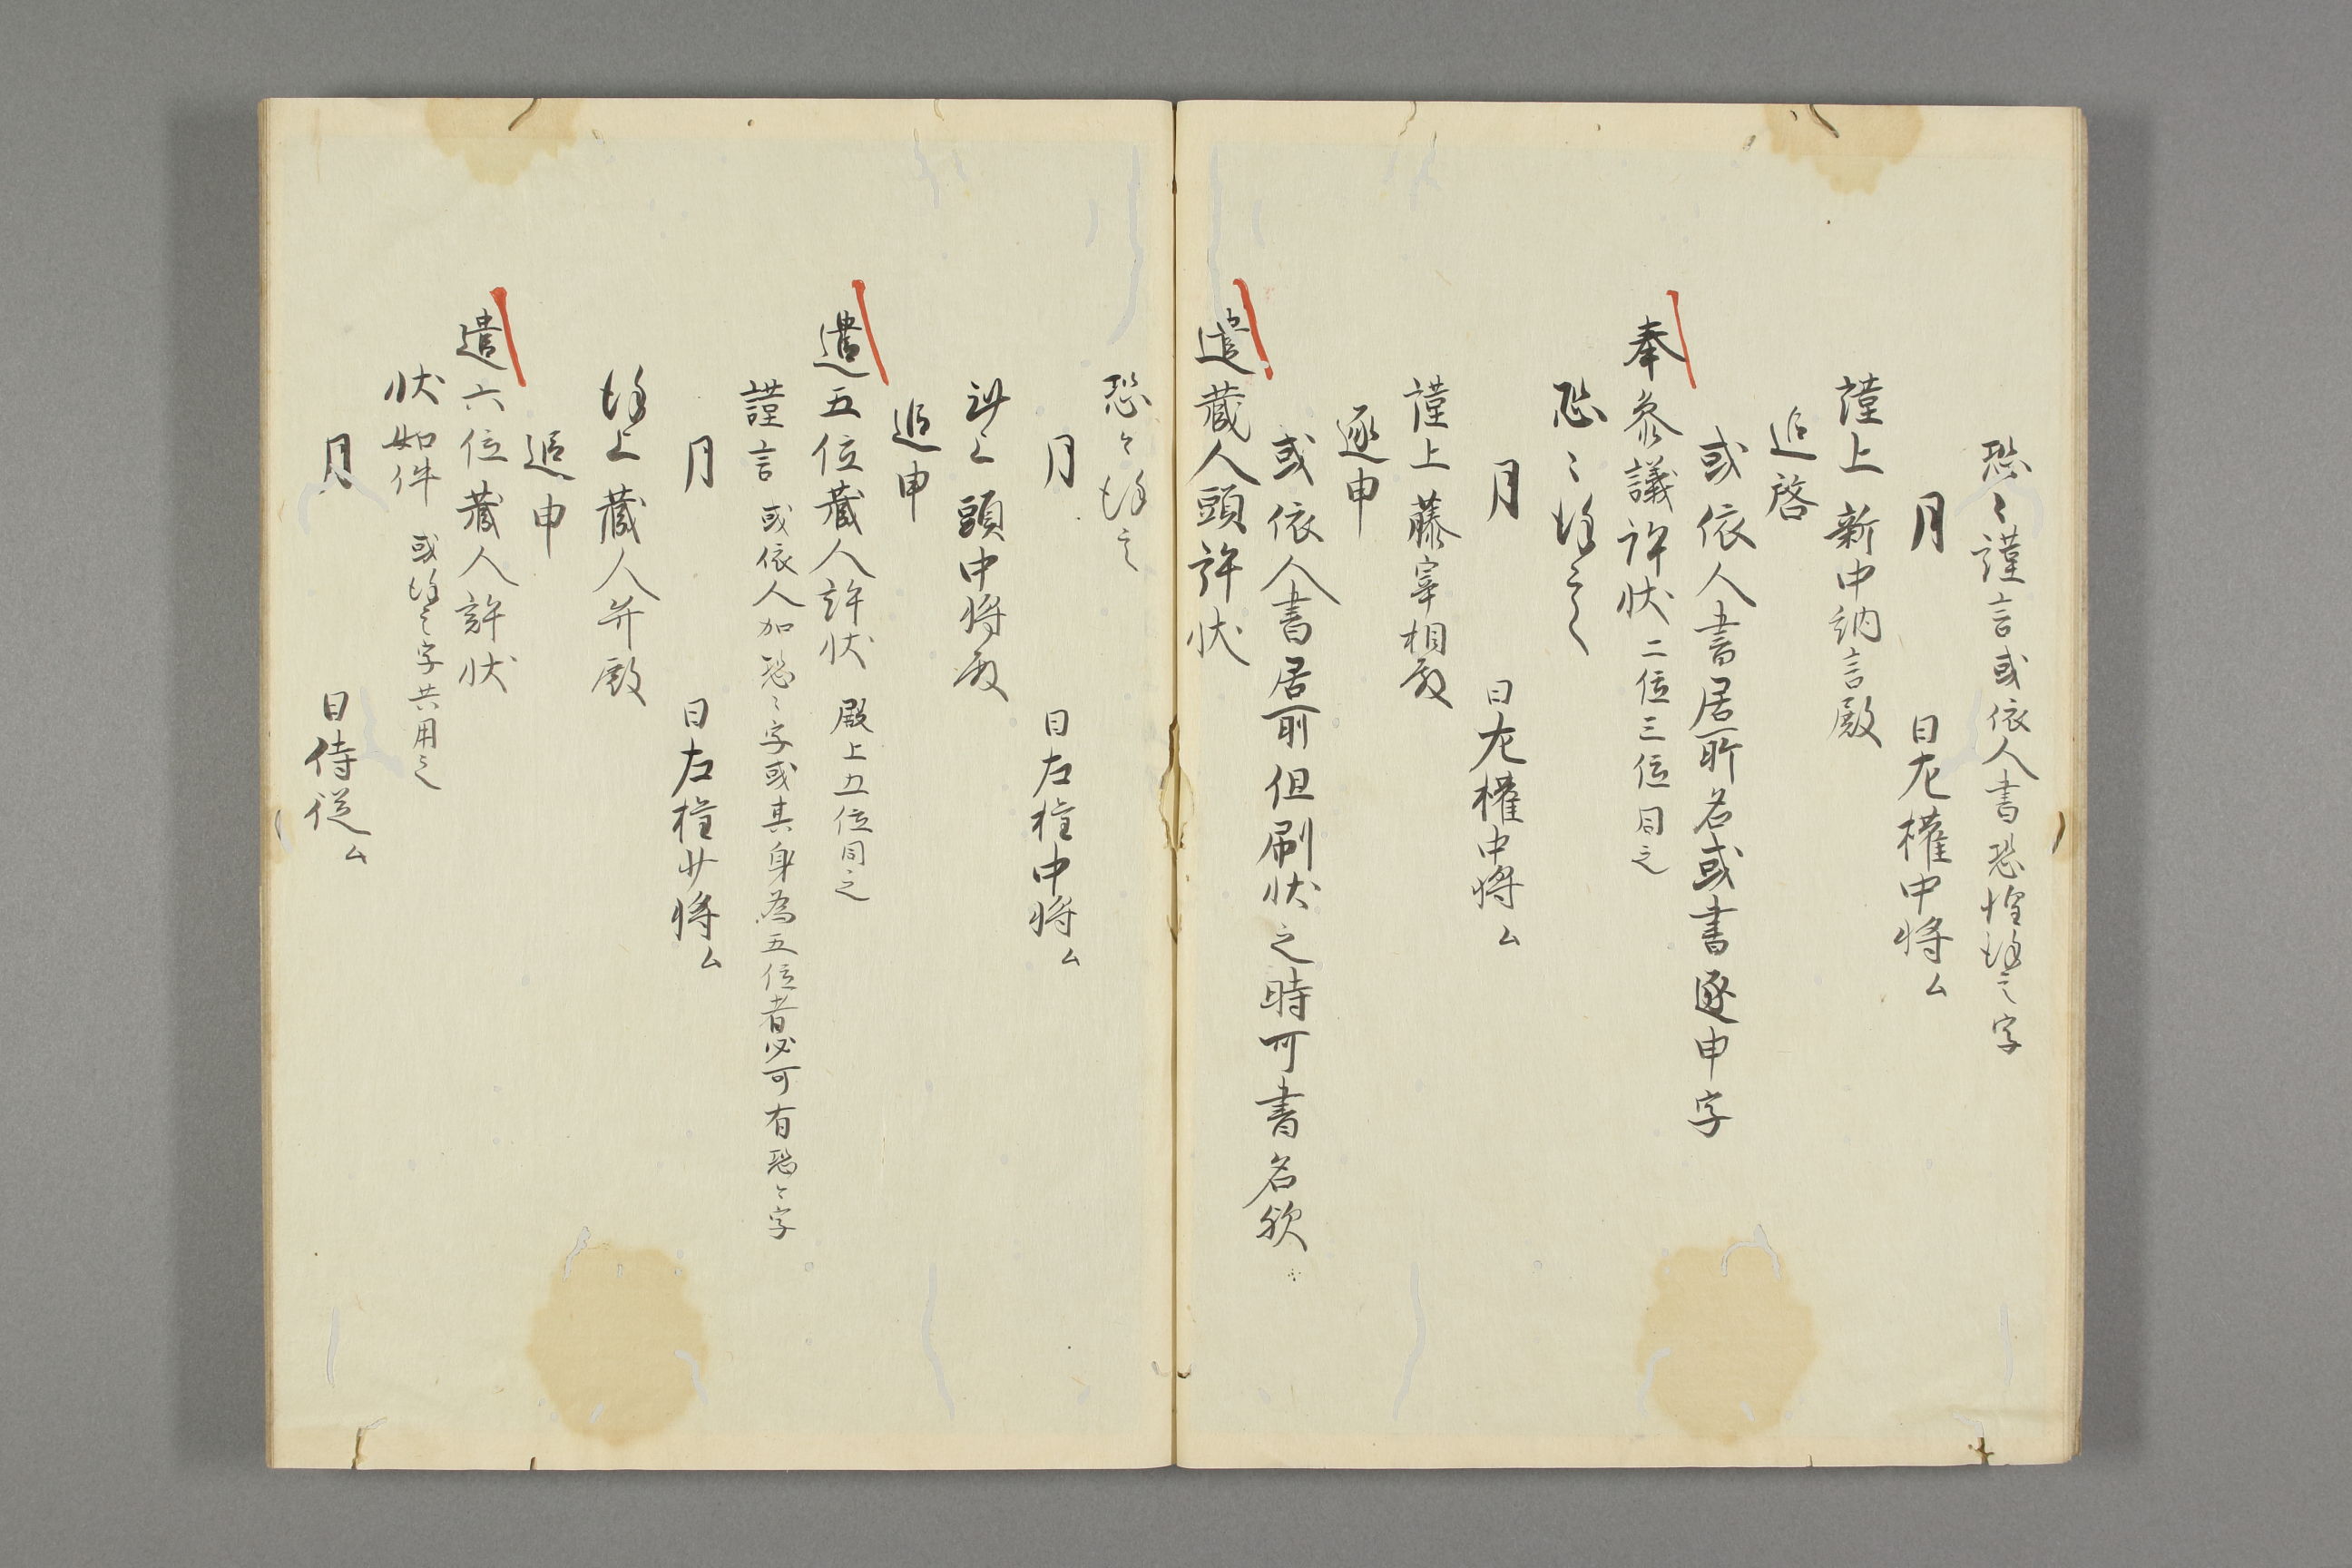 恐々謹言或依人書恐惶謹言字
月　　　日左権中将ム
謹上新中納言殿
追啓
或依人書居所名或書逐申字
奉参議許状二位三位同之
恐々謹言
月　　　日左権中将ム
謹上藤宰相殿
逐申
或依人書居所但刷状之時可書名歟
遣蔵人頭許状
恐々謹言
月　　　日左権中将ム
謹上頭中将殿
追申
遣五位蔵人許状　殿上五位同之
謹言　或依人加恐々字或其身為五位者必可有恐々字
月　　　日左権少将ム
謹上蔵人弁殿
追申
遣六位蔵人許状
状如件　或謹言字共用之
月　　　日侍従ム